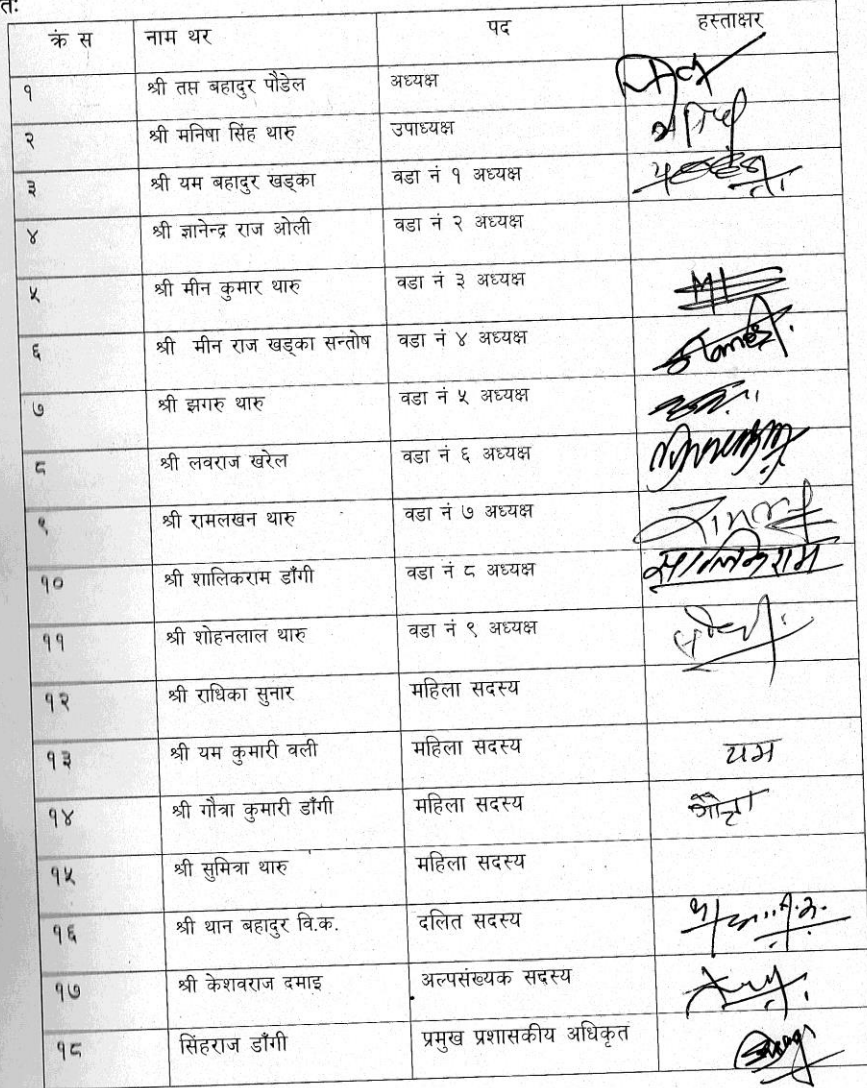 तः
क्रं स नाम थर पद हस्ताक्षर
१ श्री तप्त बहादुर पौडेल अध्यक्ष
२ श्री मनिषा सिंह थारु उपाध्यक्ष
३ श्री यम बहादुर खड्का वडा नं १ अध्यक्ष
४ श्री ज्ञानेन्द्र राज ओली वडा नं २ अध्यक्ष
५ श्री मीन कुमार थारु वडा नं ३ अध्यक्ष
६ श्री मीन राज खड्का सन्तोष वडा नं ४ अध्यक्ष
७ श्री झगरु थारु वडा नं ५ अध्यक्ष
८ श्री लवराज खरेल वडा नं ६ अध्यक्ष
९ श्री रामलखन थारु वडा नं ७ अध्यक्ष
१० श्री शालिकराम डाँगी वडा नं ८ अध्यक्ष सालिकराम
११ श्री शोहनलाल थारु वडा नं ९ अध्यक्ष
१२ श्री राधिका सुनार महिला सदस्य
१३ श्री यम कुमारी वली महिला सदस्य यम
१४ श्री गौत्रा कुमारी डाँगी महिला सदस्य गौत्रा
१५ श्री सुमित्रा थारु महिला सदस्य
१६ श्री थान बहादुर वि.क. दलित सदस्य
१७ श्री केशवराज दमाइ अल्पसंख्यक सदस्य
१८ सिंहराज डाँगी प्रमुख प्रशासकीय अधिकृत